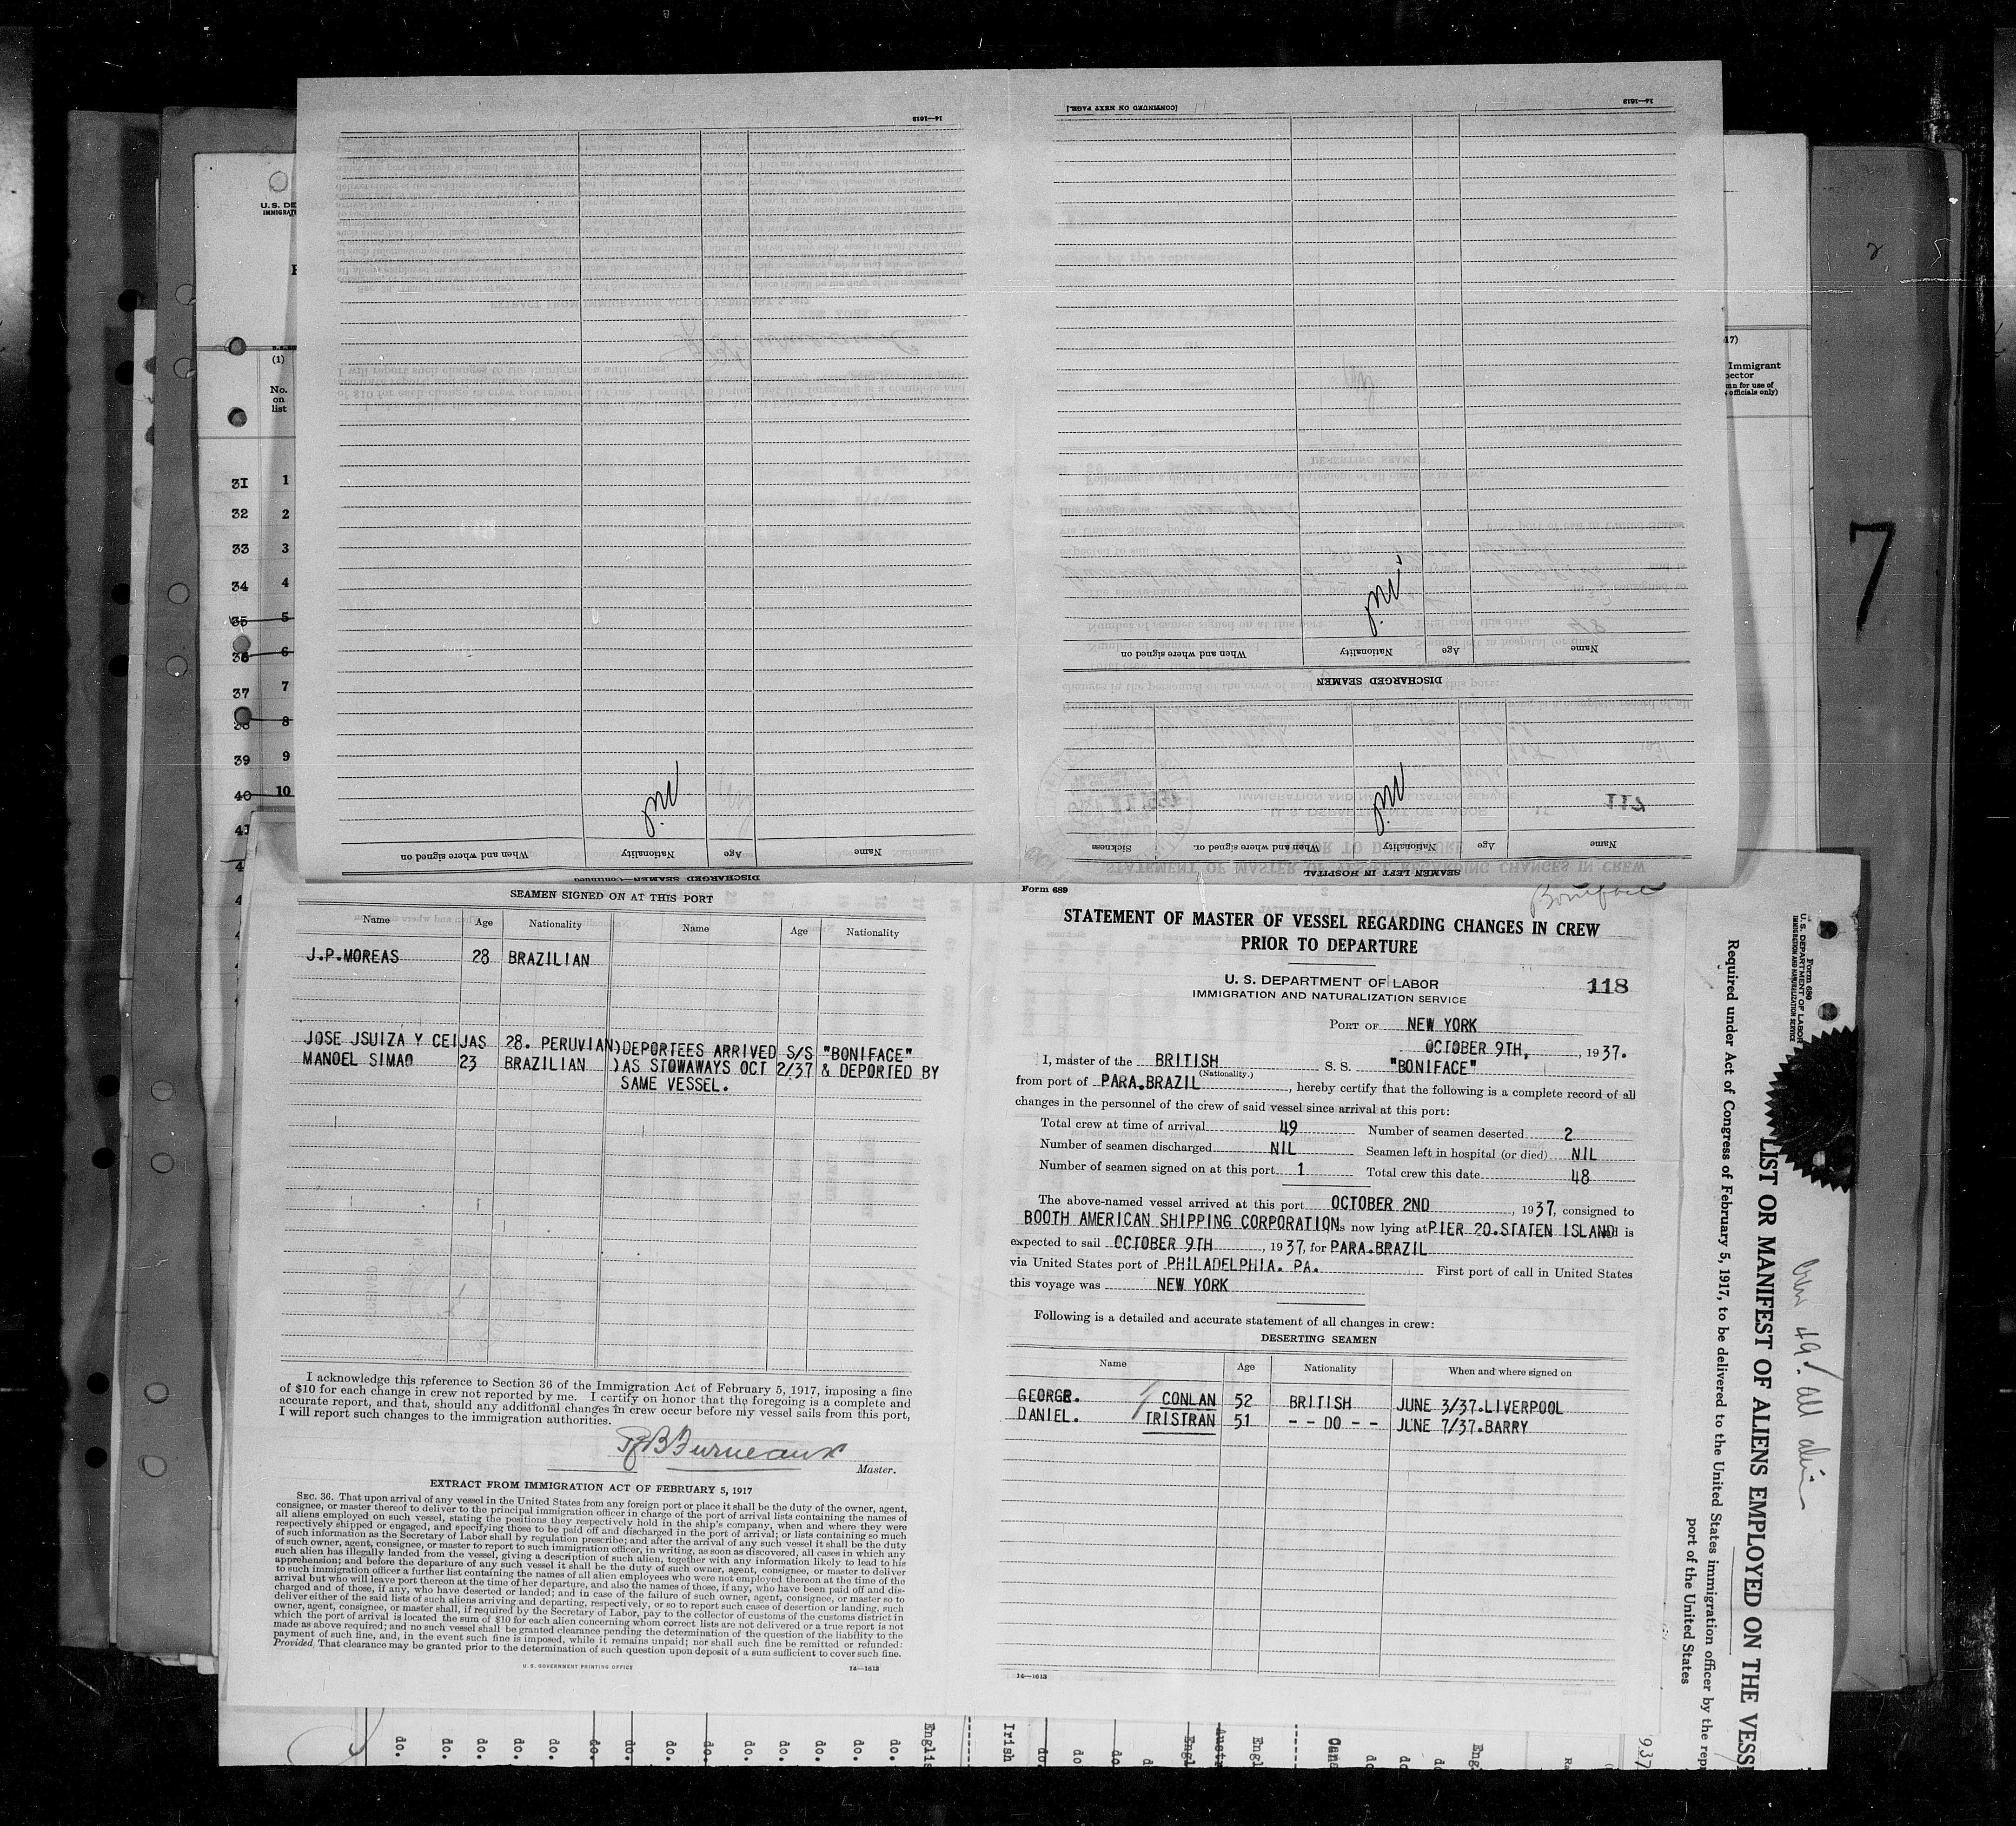 [CONTINUED ON NEXT PAGE.]
14—1613
14—1613
Name
Age
Nationality
When and where signed on
DISCHARGED SEAMEN
Name
Age
Nationality
When and where signed on
Name
Age
Nationality
When and where signed on
Sickness
DISCHARGED SEAMEN—Continued
SEAMEN LEFT IN HOSPITAL
(1)
No.
on
list
31 1
32 2
33 3
34 4
35 5
36 6
37 7
38 8
39 9
40 10
41
7
SEAMEN SIGNED ON AT THIS PORT
Name Age Nationality Name Age Nationality
J.P.MOREAS 28 BRAZILIAN
JOSE JSUIZA Y CEIJAS 28. PERUVIAN)DEPORTEES ARRIVED S/S "BONIFACE"
MANOEL SIMAO 23 BRAZILIAN )AS STOWAWAYS OCT 2/37 & DEPORTED BY
SAME VESSEL.
I acknowledge this reference to Section 36 of the Immigration Act of February 5, 1917, imposing a fine
of $10 for each change in crew not reported by me. I certify on honor that the foregoing is a complete and
accurate report, and that, should any additional changes in crew occur before my vessel sails from this port,
I will report such changes to the immigration authorities.
Furneaux
Master.
EXTRACT FROM IMMIGRATION ACT OF FEBRUARY 5, 1917
SEC. 36. That upon arrival of any vessel in the United States from any foreign port or place it shall be the duty of the owner, agent,
consignee, or master thereof to deliver to the principal immigration officer in charge of the port of arrival lists containing the names of
all aliens employed on such vessel, stating the positions they respectively hold in the ship's company, when and where they were
respectively shipped or engaged, and specifying those to be paid off and discharged in the port of arrival; or lists containing so much
of such information as the Secretary of Labor shall by regulation prescribe; and after the arrival of any such vessel it shall be the duty
of such owner, agent, consignee, or master to report to such immigration officer, in writing, as soon as discovered, all cases in which any
such alien has illegally landed from the vessel, giving a description of such alien, together with any information likely to lead to his
apprehension; and before the departure of any such vessel it shall be the duty of such owner, agent, consignee, or master to deliver
to such immigration officer a further list containing the names of all alien employees who were not employed thereon at the time of the
arrival but who will leave port thereon at the time of her departure, and also the names of those, if any, who have been paid off and dis-
charged and of those, if any, who have deserted or landed; and in case of the failure of such owner, agent, consignee, or master so to
deliver either of the said lists of such aliens arriving and departing, respectively, or so to report such cases of desertion or landing, such
owner, agent, consignee, or master shall, if required by the Secretary of Labor, pay to the collector of customs of the customs district in
which the port of arrival is located the sum of $10 for each alien concerning whom correct lists are not delivered or a true report is not
made as above required; and no such vessel shall be granted clearance pending the determination of the question of the liability to the
payment of such fine, and, in the event such fine is imposed, while it remains unpaid; nor shall such fine be remitted or refunded:
Provided, That clearance may be granted prior to the determination of such question upon deposit of a sum sufficient to cover such fine.
U. S. GOVERNMENT PRINTING OFFICE 14—1613
Form 689
Boniface
STATEMENT OF MASTER OF VESSEL REGARDING CHANGES IN CREW
PRIOR TO DEPARTURE
U. S. DEPARTMENT OF LABOR
IMMIGRATION AND NATURALIZATION SERVICE
118
PORT OF NEW YORK
OCTOBER 9TH, , 1937.
I, master of the BRITISH S. S. "BONIFACE"
(Nationality.)
from port of PARA.BRAZIL, hereby certify that the following is a complete record of all
changes in the personnel of the crew of said vessel since arrival at this port:
Total crew at time of arrival 49 Number of seamen deserted 2
Number of seamen discharged NIL Seamen left in hospital (or died) NIL
Number of seamen signed on at this port 1 Total crew this date 48
The above-named vessel arrived at this port OCTOBER 2ND, 1937, consigned to
BOOTH AMERICAN SHIPPING CORPORATION, is now lying at PIER 20.STATEN ISLAND and is
expected to sail OCTOBER 9TH, 1937, for PARA.BRAZIL
via United States port of PHILADELPHIA. PA. First port of call in United States
this voyage was NEW YORK
Following is a detailed and accurate statement of all changes in crew:
DESERTING SEAMEN
Name Age Nationality When and where signed on
GEORGE. CONLAN 52 BRITISH JUNE 3/37.LIVERPOOL
DANIEL. TRISTRAN 51 - - DO - - JUNE 7/37.BARRY
14—1613
Form 680
U. S. DEPARTMENT OF LABOR
IMMIGRATION AND NATURALIZATION SERVICE
LIST OR MANIFEST OF ALIENS EMPLOYED ON THE VESS
Required under Act of Congress of February 5, 1917, to be delivered to the United States immigration officer by the rep
port of the United States
Crew 49/ All alien